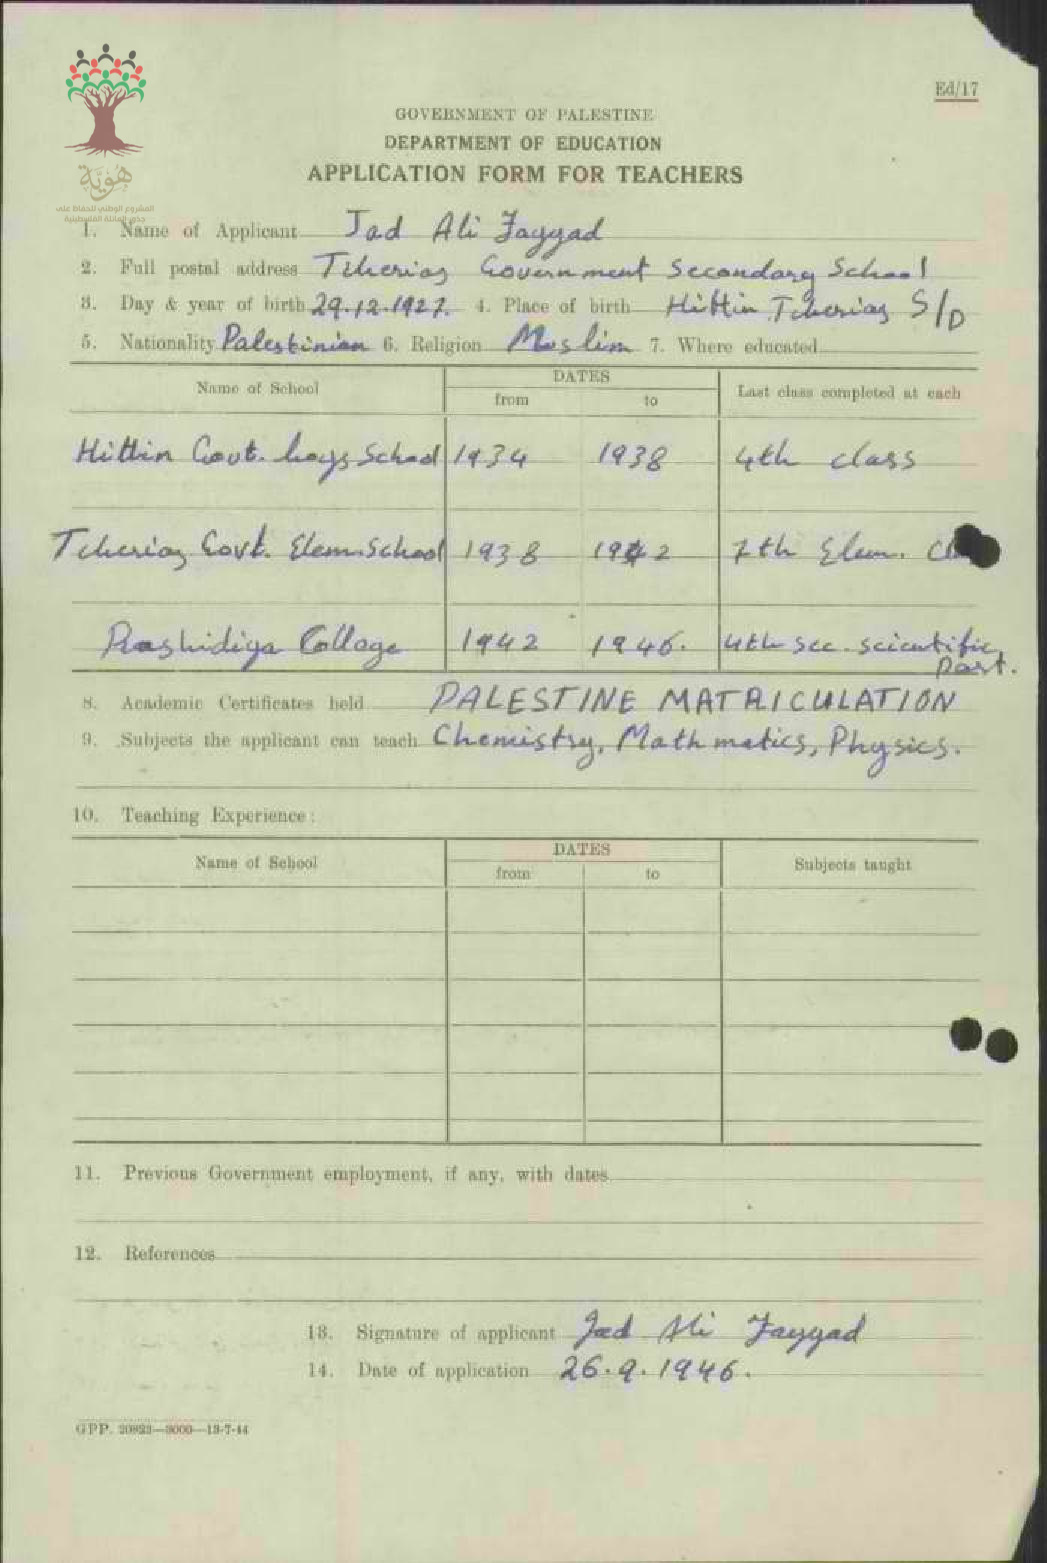 Ed/17
GOVERNMENT OF PALESTINE
DEPARTMENT OF EDUCATION
APPLICATION FORM FOR TEACHERS
هوية
المشروع الوطني للحفاظ على
جذور العائلة الفلسطينية
1. Name of Applicant Jad Ali Fayyad
2. Full postal address Tiberias Government Secondary School
3. Day & year of birth 29.12.1927. 4. Place of birth Hittin Tiberias S/D
5. Nationality Palestinian 6. Religion Muslim 7. Where educated
Name of School DATES Last class completed at each
from to
Hittin Govt. boys School 1934 1938 4th class
Tiberias Govt. Elem. School 1938 1942 7th Elem.
Rashidiya College 1942 1946. 4th sec. scientific
part.
8. Academic Certificates held PALESTINE MATRICULATION
9. Subjects the applicant can teach Chemistry, Mathmetics, Physics.
10. Teaching Experience:
Name of School DATES Subjects taught
from to
11. Previous Government employment, if any, with dates
12. References
13. Signature of applicant Jad Ali Fayyad
14. Date of application 26.9.1946.
GPP. 20823—3000—13-7-44